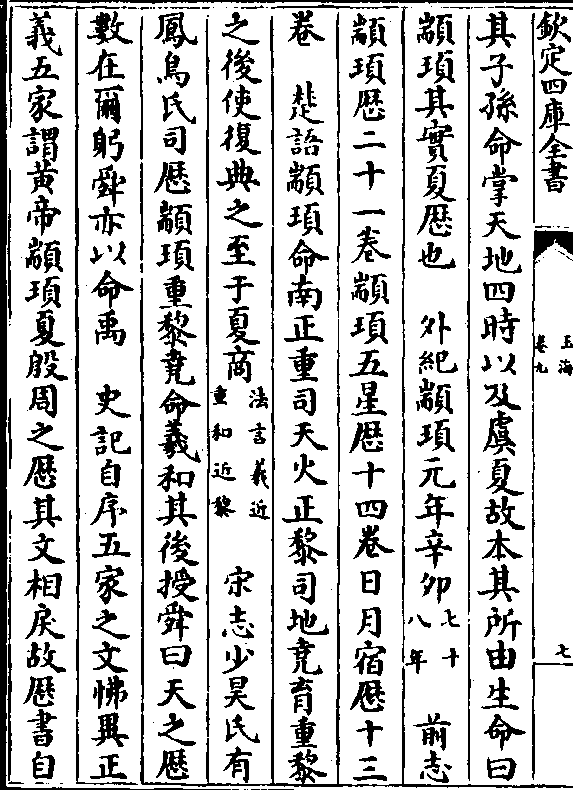 欽定四庫全書
玉海
卷九
七
其子孫命掌天地四時以及虞夏故本其所由生命曰
顓頊其實夏厯也　外紀顓頊元年辛卯七十八年　前志
顓頊厯二十一卷顓頊五星厯十四卷日月宿厯十三
卷　楚語顓頊命南正重司天火正黎司地堯育重黎
之後使復典之至于夏商法言羲近重和近黎　宋志少昊氏有
鳳鳥氏司厯顓頊重黎堯命羲和其後授舜曰天之厯
數在爾躬舜亦以命禹　史記自序五家之文怫異正
義五家謂黄帝顓頊夏殷周之厯其文相戾故厯書自